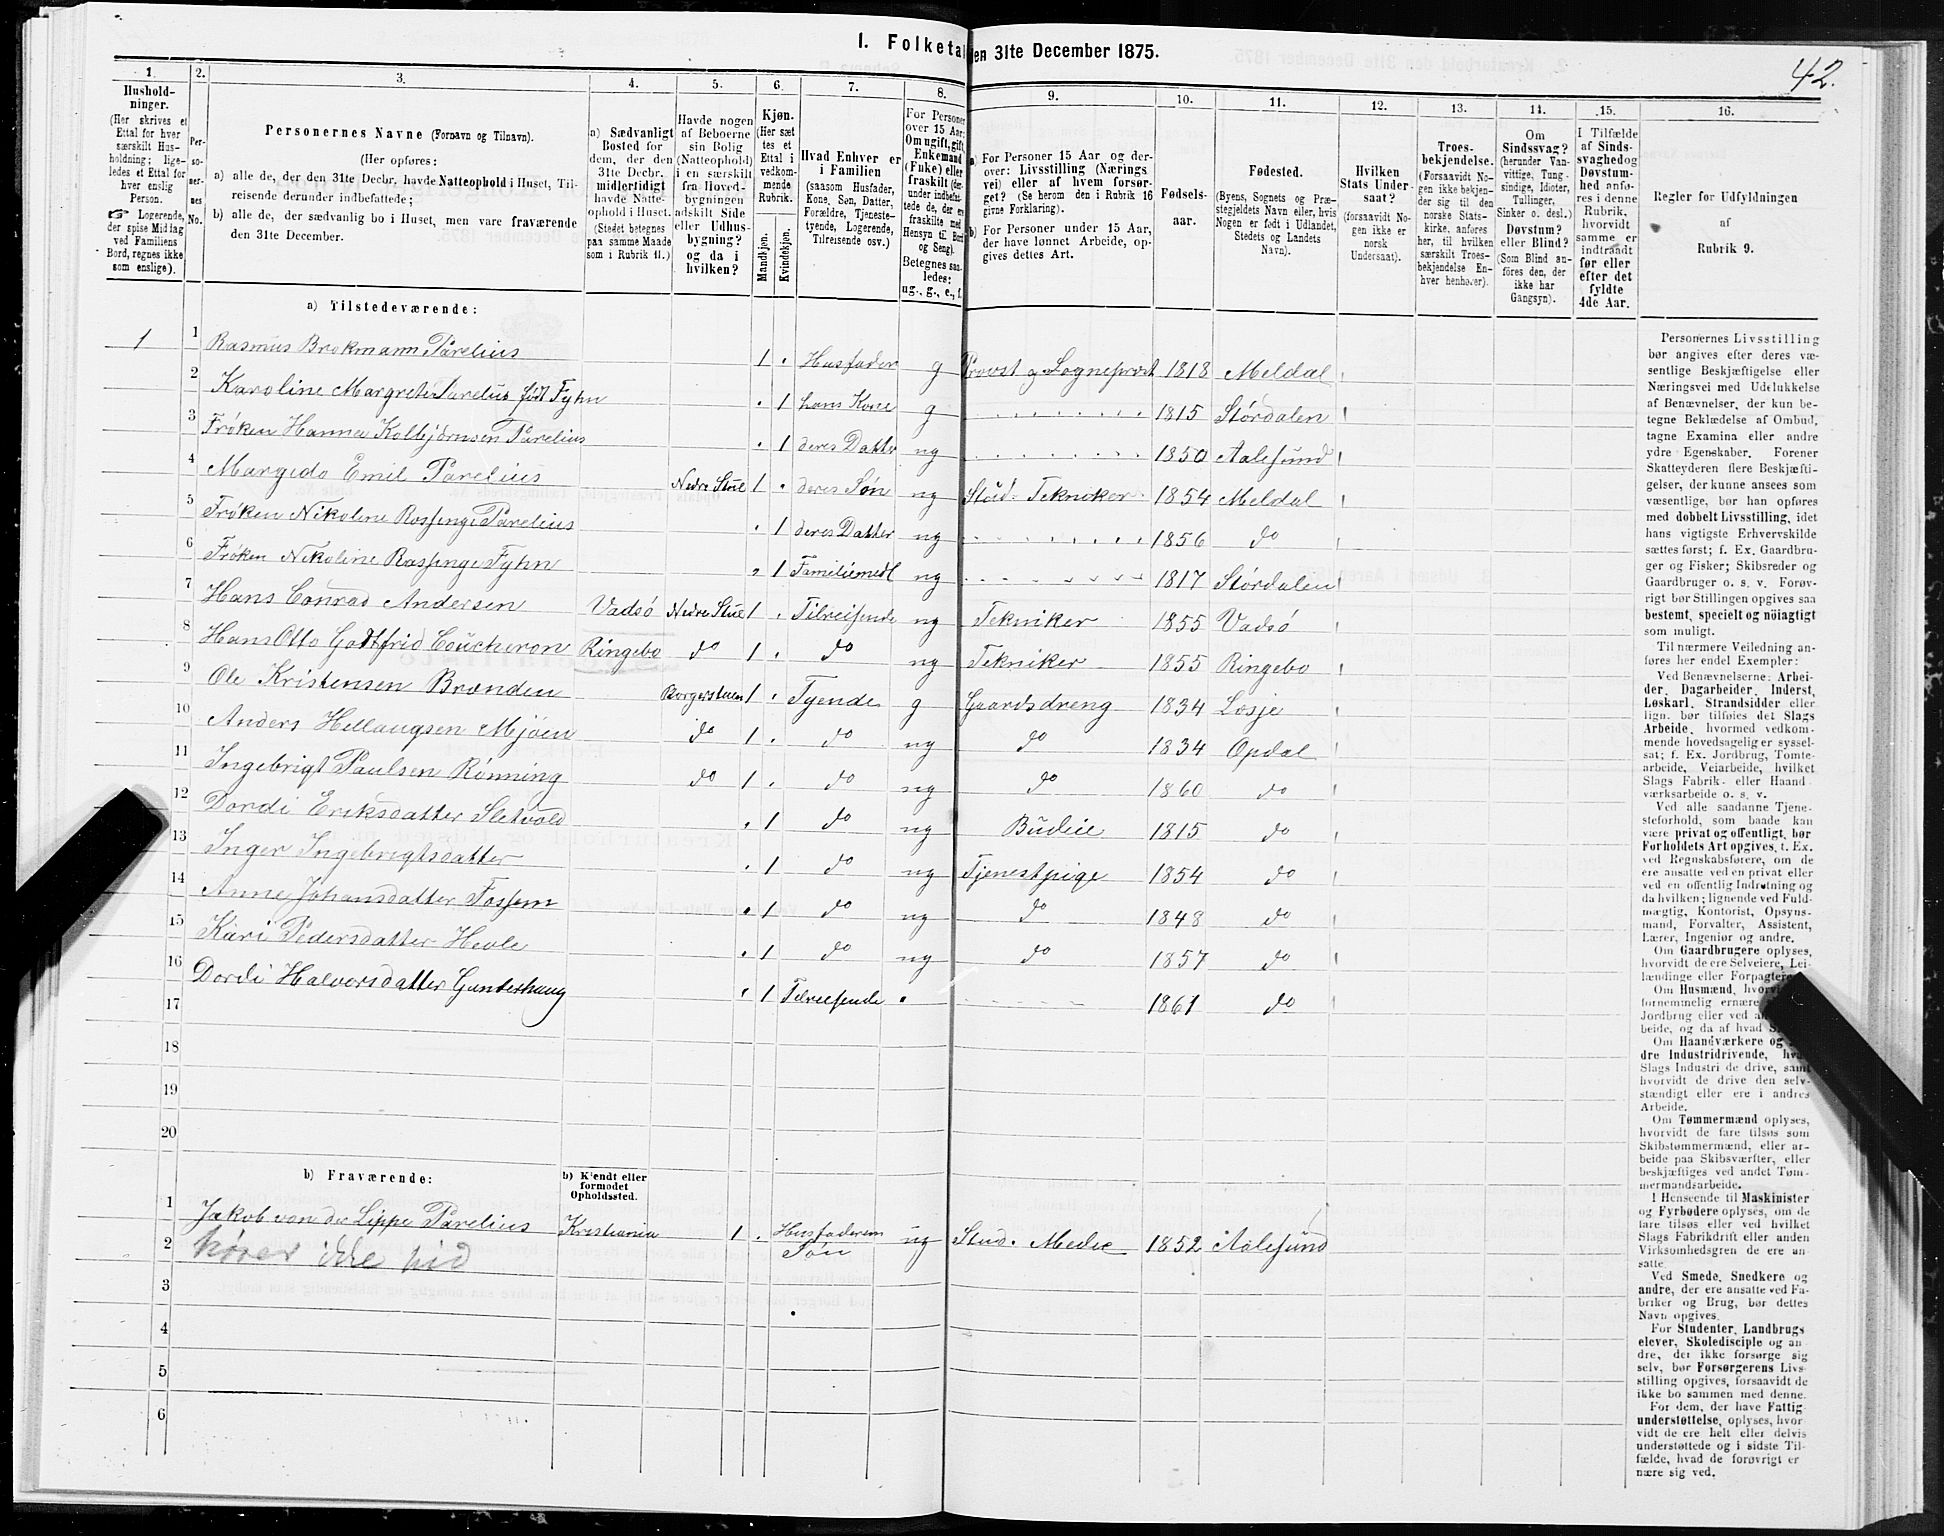 I. Folketal den 31te December 1875.
42.
1. 2. 3. 4. 5. 6. 7. 8. 9. 10. 11. 12. 13. 14. 15. 16.
Hushold-
ninger.
(Her skrives et
Ettal for hver
særskilt Hus-
holdning; lige-
ledes et Ettal for
hver enslig
Person.
☞ Logerende,
der spise Middag
ved Familiens
Bord, regnes ikke
som enslige).
Per-
so-
ner-
nes
No.
Personernes Navne (Fornavn og Tilnavn).
(Her opføres:
a) alle de, der den 31te Decbr. havde Natteophold i Huset, Til-
reisende derunder indbefattede;
b) alle de, der sædvanlig bo i Huset, men vare fraværende
den 31te December.
a) Sædvanligt
Bosted for
dem, der den
31te Decbr.
midlertidigt
havde Natte-
ophold i Huset.
(Stedet betegnes
paa samme Maade
som i Rubrik 11.)
Havde nogen
af Beboerne
sin Bolig
(Natteophold)
i en særskilt
fra Hoved-
bygningen
adskilt Side
eller Udhus-
bygning?
og da i
hvilken?
Kjøn.
(Her sæt
tes et
Ettal i
vedkom-
mende
Rubrik.
Mandkjøn.
Kvindekjøn.
Hvad Enhver er
i Familien
(saasom Husfader,
Kone, Søn, Datter,
Forældre, Tjeneste-
tyende, Logerende,
Tilreisende osv.)
For Personer
over 15 Aar:
Om ugift, gift,
Enkemand
(Enke) eller
fraskilt (der-
under indbefat-
tede de, der ere
fraskilte med
Hensyn til Bord
og Seng).
Betegnes saa-
ledes:
ug., g., e., f.
a) For Personer 15 Aar og der-
over: Livsstilling (Nærings
vei) eller af hvem forsør-
get? (Se herom den i Rubrik 16
givne Forklaring).
b) For Personer under 15 Aar,
der have lønnet Arbeide, op-
gives dettes Art.
Fødsels-
aar.
Fødested.
(Byens, Sognets og Præ-
stegjeldets Navn eller, hvis
Nogen er født i Udlandet,
Stedets og Landets
Navn).
Hvilken
Stats Under-
saat?
(forsaavidt No-
gen ikke er
norsk
Undersaat).
Troes-
bekjendelse.
(Forsaavidt No-
gen ikke bekjen-
der sig til den
norske Stats-
kirke, anføres
her, til hvilken
særskilt Troes-
bekjendelse En-
hver henhører).
Om
Sindssvag?
(herunder Van-
vittige, Tung-
sindige, Idioter,
Tullinger,
Sinker o. desl.)
Døvstum?
eller Blind?
(Som Blind an-
føres den, der
ikke har
Gangsyn).
I Tilfælde
af Sinds-
svaghed og
Døvstum-
hed anfø-
res i denne
Rubrik,
hvorvidt
samme er
indtraadt
før eller
efter det
fyldte
4de Aar.
Regler for Udfyldningen
af
Rubrik 9.
a) Tilstedeværende:
1 1 Rasmus Brokmann Parelius 1 . Husfader g Provst og Sognepræst 1818 Meldal
2 Karoline Margrete Parelius født Fyhn . 1 hans Kone g 1815 Stördalen
3 Frøken Hanna Kolbjörnsen Parelius . 1 deres Datter ug 1850 Aalesund
4 Margido Emil Parelius Nedre Stue 1 . deres Søn ug Stud. Tekniker 1854 Meldal
5 Frøken Nikoline Rossing Parelius . 1 deres Datter ug 1856 do
6 Frøken Nikoline Rossing Fyhn . 1 Familiemedl ug 1817 Stördalen
7 Hans Conrad Andersen Vadsö Nedre Stue 1 . Tilreisende ug Tekniker 1855 Vadsö
8 Hans Otto Gottfrid Coucheron Ringebo do 1 . do ug Tekniker 1855 Ringebo
9 Ole Kristensen Brænden Borgerstuen 1 . Tyende g Gaardsdreng 1834 Lesje
10 Anders Hellaugsen Mjöen do 1 . do ug do 1834 Opdal
11 Ingebrigt Paulsen Rönning do 1 . do ug do 1860 do
12 Dordi Eriksdatter Sletvold . 1 do ug Budeie 1815 do
13 Inger Ingebrigtsdatter . 1 do ug Tjenestpige 1854 do
14 Anne Johansdatter Fossem . 1 do ug do 1848 do
15 Kari Pedersdatter Hevle . 1 do ug do 1857 do
16 Dordi Halvorsdatter Gunderhaug . 1 Tilreisende . 1861 do
17
18
19
20
b) Fraværende:
b) Kjendt eller
formodet
Opholdssted.
1 Jakob von der Lippe Parelius Kristiania 1 . Husfaderens Søn ug Stud. Medic 1852 Aalesund
2 hører ikke hid
3
4
5
6
Personernes Livsstilling
bør angives efter deres væ-
sentlige Beskjæftigelse eller
Næringsvei med Udelukkelse
af Benævnelser, der kun be-
tegne Beklædelse af Ombud,
tagne Examina eller andre
ydre Egenskaber. Forener
Skatteyderen flere Beskjæfti-
gelser, der kunne ansees som
væsentlige, bør han opføres
med dobbelt Livsstilling, idet
hans vigtigste Erhvervskilde
sættes først; f. Ex. Gaardbru-
ger og Fisker; Skibsreder og
Gaardbruger o. s. v. Forøv-
rigt bør Stillingen opgives saa
bestemt, specielt og nöiagtigt
som muligt.
Til nærmere Veiledning an-
føres her endel Exempler:
Ved Benævnelserne: Arbei-
der, Dagarbeider, Inderst,
Løskarl, Strandsidder eller
lign. bør tilføies det Slags
Arbeide, hvormed vedkom-
mende hovedsagelig er syssel-
sat; f. Ex. Jordbrug, Tomte-
arbeide, Veiarbeide, hvilket
Slags Fabrik- eller Haand
værksarbeide o. s. v.
Ved alle saadanne Tjene-
steforhold, som baade kan
være privat og offentligt, bør
Forholdets Art opgives, t. Ex.
ved Regnskabsførere, om de
ere ansatte ved en privat eller
ved en offentlig Indretning og
da hvilken; lignende ved Fuld-
mægtig, Kontorist, Opsyns-
mand, Forvalter, Assistent,
Lærer, Ingeniør og andre.
Om Gaardbrugere oplyses,
hvorvidt de ere Selveiere, Lei-
lændinge eller Forpagtere.
Om Husmænd,
fornemmelig ernære
Jordbrug eller ved
beide, og da af hvad
Om Haandværkere og
dre Industridrivende,
Slags Industri de drive, samt
hvorvidt de drive den selv-
stændigt eller ere i andres
Arbeide.
Om Tømmermænd oplyses,
hvorvidt de fare tilsøs som
Skibstømmermænd, eller ar-
beide paa Skibsværfter, eller
beskjæftiges ved andet Tøm-
mermandsarbeide.
I Henseende til Maskinister
og Fyrbødere oplyses, om de
fare tilsøs eller ved hvilket
Slags Fabrikdrift eller anden
Virksomhedsgren de ere an-
satte.
Ved Smede, Snedkere og
andre, der ere ansatte ved Fa-
briker og Brug, bør dettes
Navn opgives.
For Studenter, Landbrugs
elever, Skoledisciple og an-
dre, det ikke forsørge sig
selv, bør Forsørgerens Livs-
stilling opgives, forsaavidt de
ikke bo sammen med denne.
For dem, der have Fattig-
understøttelse, oplyses, hvor
vidt de ere helt eller delvis
understøttede og i sidste Til-
fælde, hvad de forøvrigt er
nære sig ved.